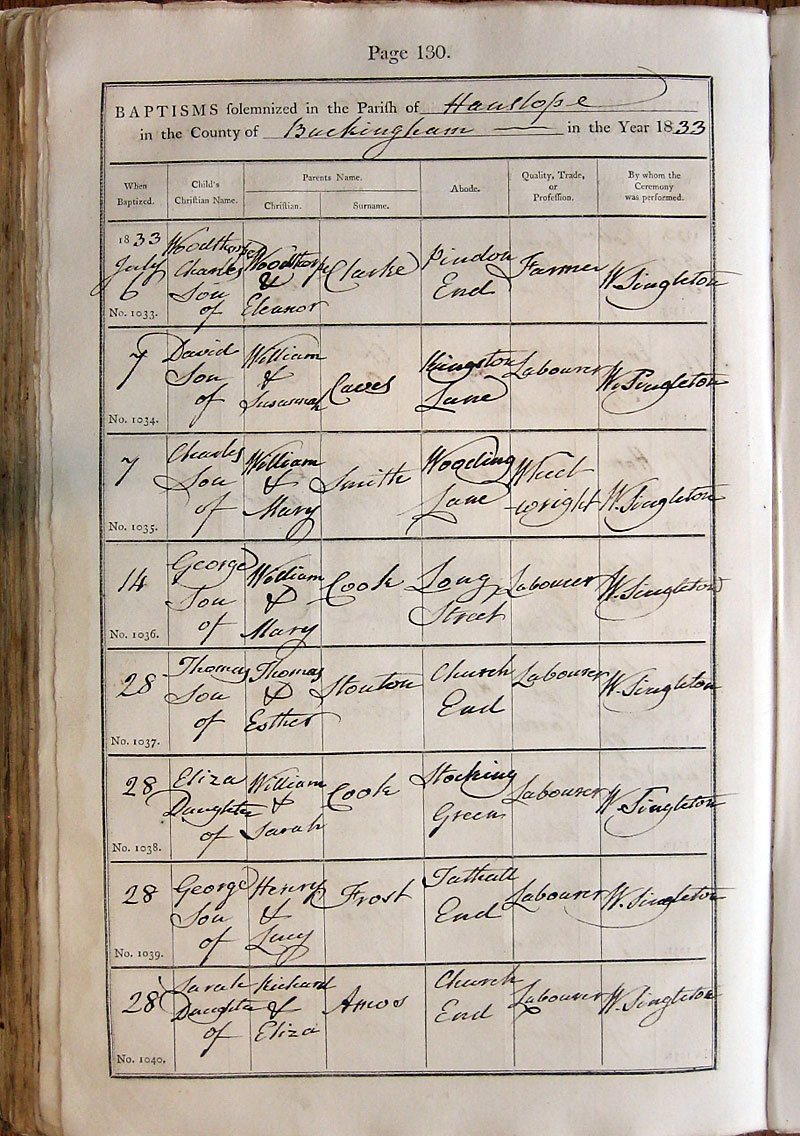 Page 130.
BAPTISMS solemnized in the Parish of Hanslope
in the County of Buckingham in the Year 1833
When Baptized.
Child's Christian Name.
Parents Name.
Christian.
Surname.
Abode.
Quality, Trade, or Profession.
By whom the Ceremony was performed.
1833
July
6
No. 1033.
Woodthorpe
Charles
Son
of
Woodthorpe
&
Eleanor
Clarke
Pindon
End
Farmer
W. Singleton
7
No. 1034.
David
Son
of
William
&
Susannah
Caves
Kingston
Lane
Labourer
W. Singleton
7
No. 1035.
Charles
Son
of
William
&
Mary
Smith
Wooding
Lane
Wheel
wright
W. Singleton
14
No. 1036.
George
Son
of
William
&
Mary
Cook
Long
Street
Labourer
W. Singleton
28
No. 1037.
Thomas
Son
of
Thomas
&
Esther
Stonton
Church
End
Labourer
W. Singleton
28
No. 1038.
Eliza
Daughter
of
William
&
Sarah
Cook
Stocking
Green
Labourer
W. Singleton
28
No. 1039.
George
Son
of
Henry
&
Lucy
Frost
Tathall
End
Labourer
W. Singleton
28
No. 1040.
Sarah
Daughter
of
Richard
&
Eliza
Amos
Church
End
Labourer
W. Singleton